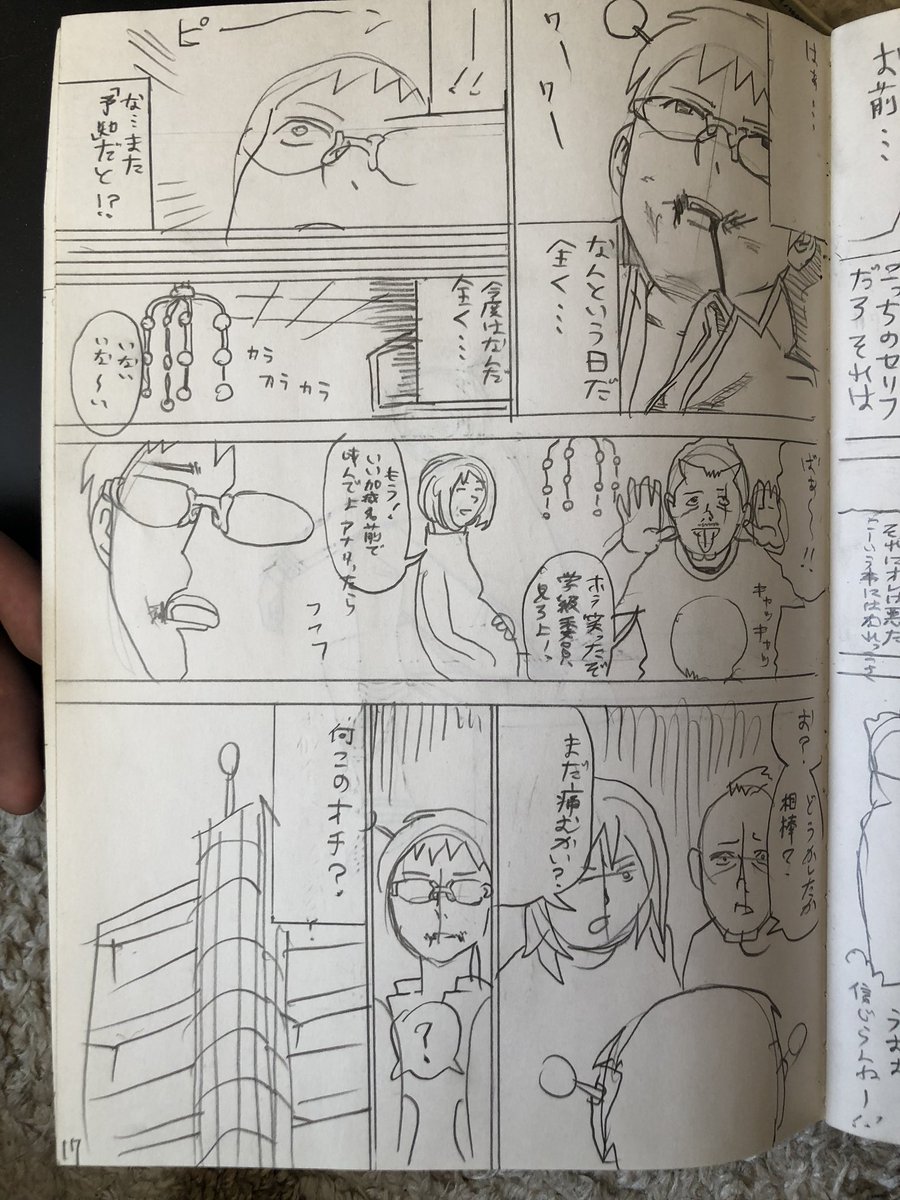 はぁ…
ワーワー
なんという日だ
全く…
ー!!
ピー
な…また
「予知だと!?
今度はなんだ
全く…
カラ
カラカラ
いない
いな〜い
ばぁ〜!!
キャッキャッ
ホラ笑ったぞ
学級委員
見ろよ!
もう!
いい加減名前で
呼んでよアナタったら
フフフ
お?どうかしたか
相棒?
まだ痛むかい?
?
何このオチ?
17
お前…
こっちのセリフ
だろそれは
信じらんねー!